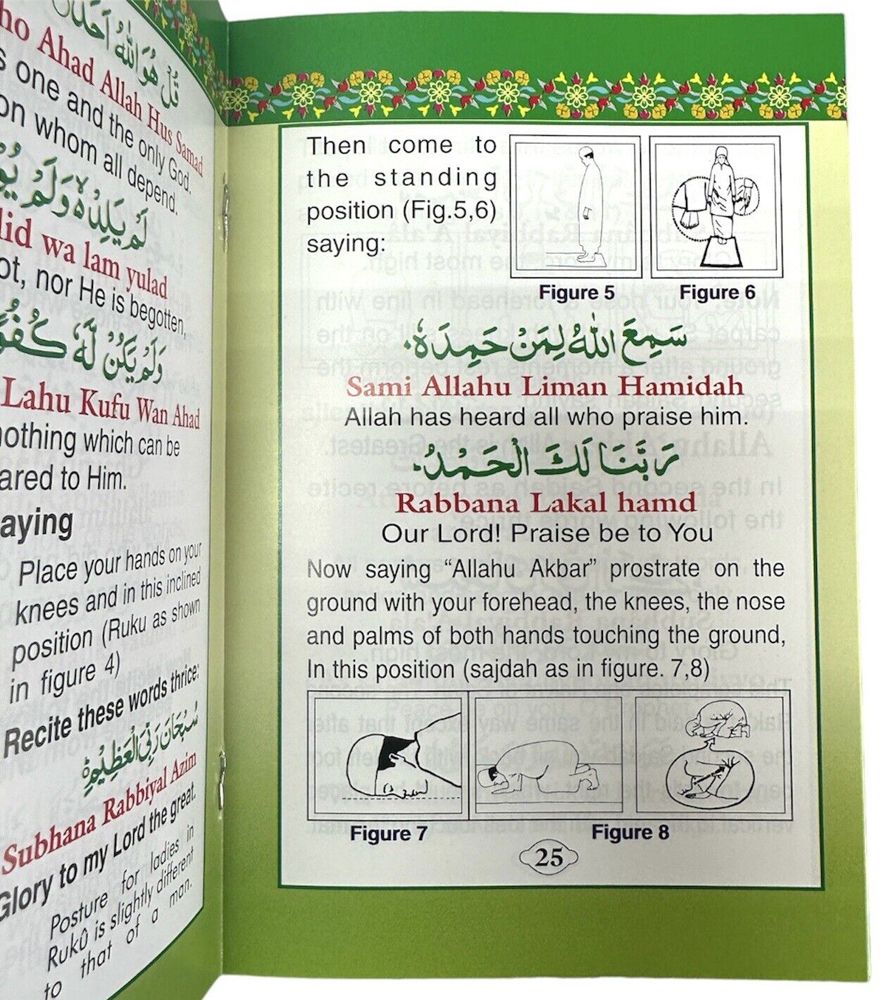 ho Ahad Allah Hus Samad
one and the only God,
on whom all depend.
قُلْ هُوَ اللّٰهُ اَحَدٌ
لَمْ يَلِدْ وَلَمْ
lid wa lam yulad
ot, nor He is begotten,
وَلَمْ يَكُنْ لَّهٗ
Lahu Kufu Wan Ahad
nothing which can be
ared to Him.
aying
Place your hands on your
knees and in this inclined
position (Ruku as shown
in figure 4)
Recite these words thrice:
سُبْحَانَ رَبِّيَ الْعَظِيْمِ
Subhana Rabbiyal Azim
Glory to my Lord the great.
Posture for ladies in
Rukû is slightly different
to that of a man.
Then come to
the standing
position (Fig.5,6)
saying:
Figure 5
Figure 6
سَمِعَ اللّٰهُ لِمَنْ حَمِدَهٗ۔
Sami Allahu Liman Hamidah
Allah has heard all who praise him.
رَبَّنَا لَكَ الْحَمْدُ۔
Rabbana Lakal hamd
Our Lord! Praise be to You
Now saying “Allahu Akbar” prostrate on the
ground with your forehead, the knees, the nose
and palms of both hands touching the ground,
In this position (sajdah as in figure. 7,8)
Figure 7
Figure 8
25